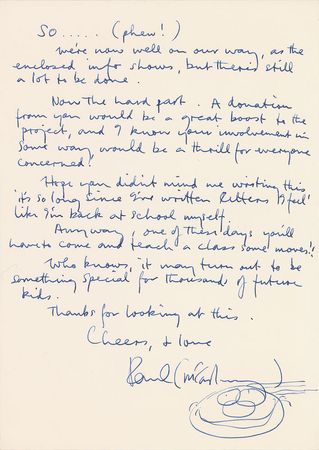 So ..... (phew!)
We're now well on our way, as the
enclosed info shows, but there's still
a lot to be done.
Now the hard part. A donation
from you would be a great boost to the
project, and I know your involvement in
some way would be a thrill for everyone
concerned!
Hope you didn't mind me writing this
it's so long since I've written letters I feel
like I'm back at school myself.
Anyway, one of these days you'll
have to come and teach a class some moves!!
Who knows, it may turn out to be
something special for thousands of future
kids.
Thanks for looking at this.
Cheers, & love
Paul (McCartney)